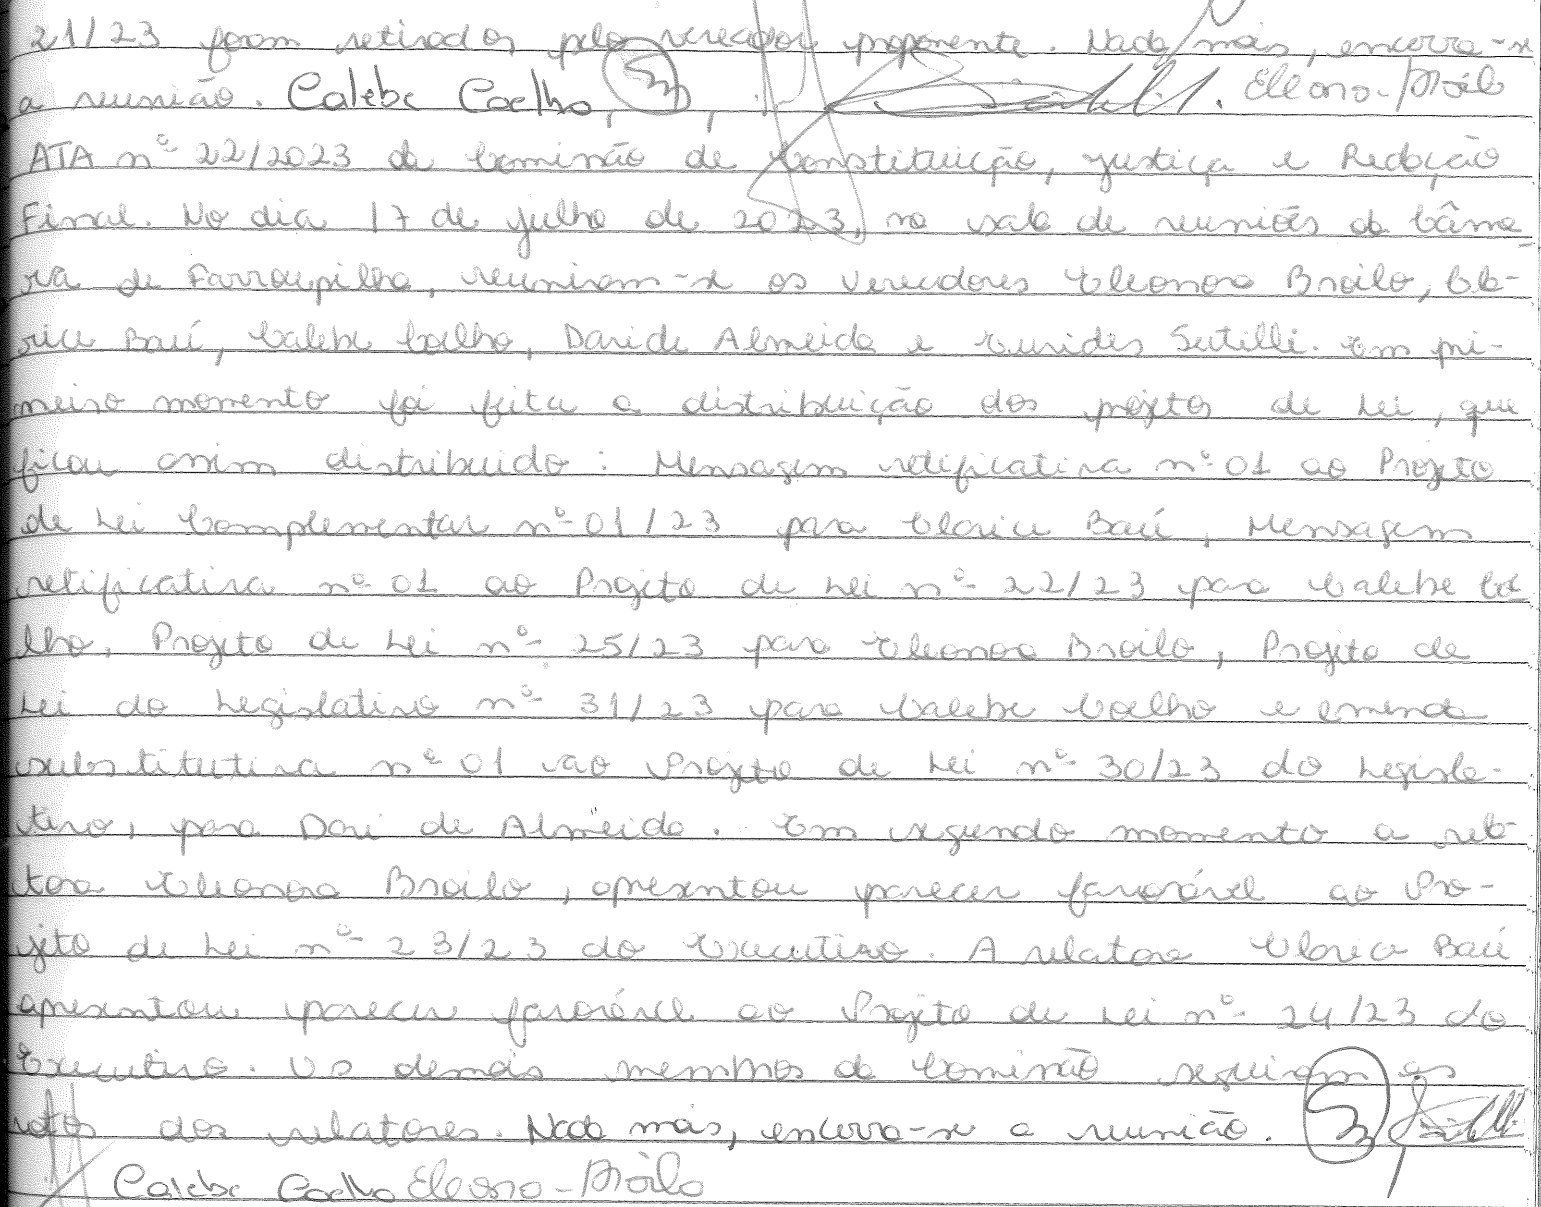 21/23 foram retirados pelo vereador proponente. Nada mais, encerra-se
a reunião. Calebe Coelho, Eleonora Broilo
ATA nº 22/2023 da Comissão de Constituição, Justiça e Redação
Final. No dia 17 de julho de 2023, na sala de reuniões da Câma-
ra de Farroupilha, reuniram-se os vereadores Eleonora Broilo, Cla-
rice Baú, Calebe Coelho, Davi de Almeida e Eurides Sutilli. Em pri-
meiro momento foi feita a distribuição dos projetos de Lei, que
ficou assim distribuido: Mensagem retificativa nº 01 ao Projeto
de Lei Complementar nº 01/23 para Clarice Baú, Mensagem
retificativa nº 01 ao Projeto de Lei nº 22/23 para Calebe Coe
lho, Projeto de Lei nº 25/23 para Eleonora Broilo, Projeto de
Lei do Legislativo nº 31/23 para Calebe Coelho e emenda
substitutiva nº 01 ao Projeto de Lei nº 30/23 do Legisla-
tivo, para Davi de Almeida. Em segundo momento a rela-
tora Eleonora Broilo, apresentou parecer favorável ao Pro-
jeto de Lei nº 23/23 do Executivo. A relatora Clarice Baú
apresentou parecer favorável ao Projeto de Lei nº 24/23 do
Executivo. Os demais membros da Comissão seguiram os
votos dos relatores. Nada mais, encerra-se a reunião.
Calebe Coelho Eleonora Broilo